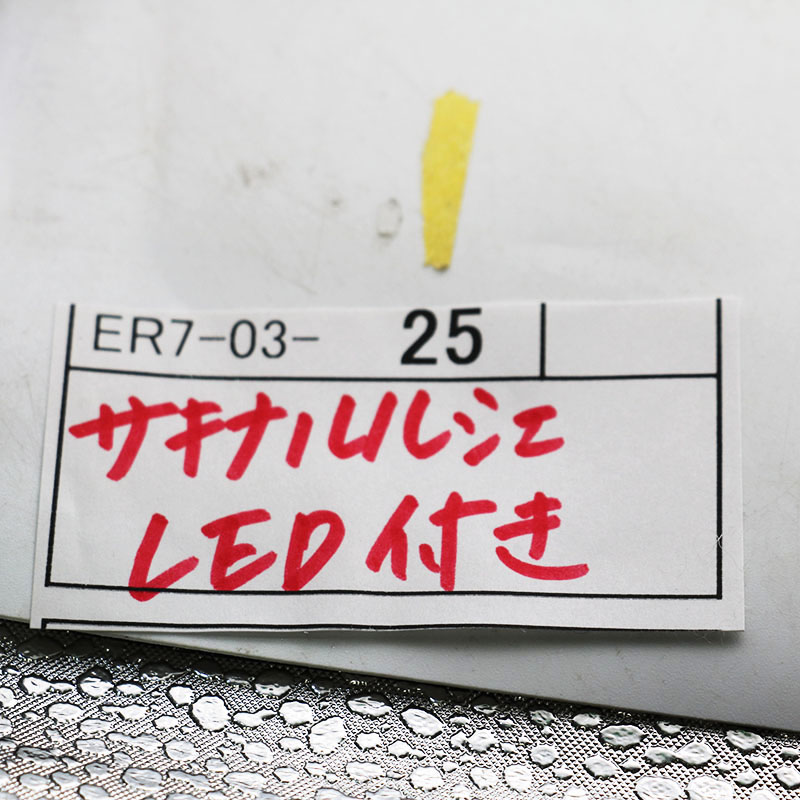 ER7-03- 25
サキナルルシエ
LED付き